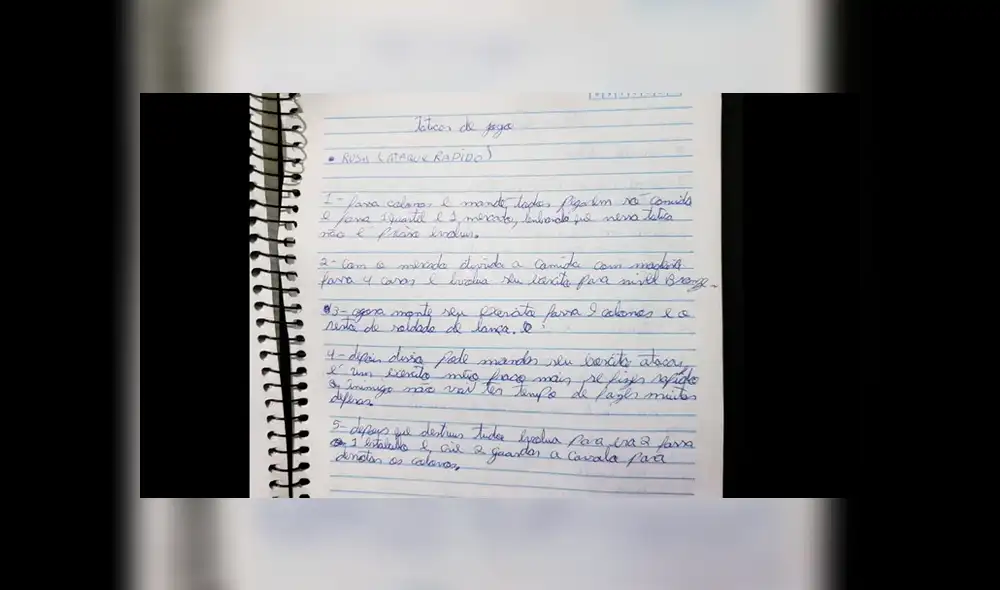 Taticas de jogo
• RUSH (ATAQUE RAPIDO)
1 - fassa colonos e mande todos pegarem só comida
e fassa 1 quartel e 1 mercado, lembrando que nessa tatica
não é preciso evoluir.
2 - com o mercado divida a comida com madeira
fassa 4 casas e evolua seu exercito para nivel Bronze.
3 - agora monte seu exercito fassa 9 colonos e o
resto de soldado de lança.
4 - depois disso pode mandar seu exercito atacar,
é um exercito meio fraco mais se fizer rapido
o inimigo não vai ter tempo de fazer muitas
defesas.
5 - depois que destruir tudo evolua para era 2 fassa
1 estabulo e crie 2 guardas a cavalo para
derrotar os colonos.